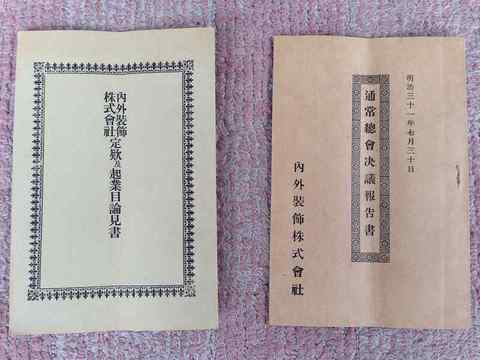 內外裝飾
株式會社
定欵及起業目論見書
明治三十一年七月三十日
通常總會決議報告書
內外裝飾株式會社